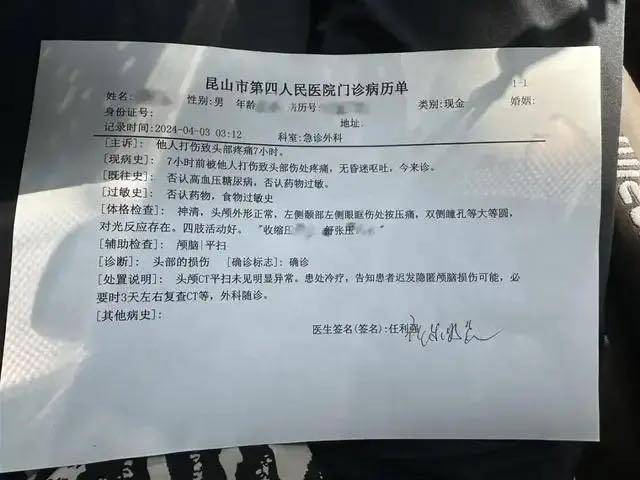 昆山市第四人民医院门诊病历单
1-1
姓名: 性别:男 年龄 病历号: 类别:现金 婚姻:
身份证号: 地址:
记录时间:2024-04-03 03:12 科室:急诊外科
[主诉]: 他人打伤致头部疼痛7小时。
[现病史]: 7小时前被他人打伤致头部伤处疼痛,无昏迷呕吐,今来诊。
[既往史]: 否认高血压糖尿病,否认药物过敏。
[过敏史] 否认药物,食物过敏史
[体格检查]: 神清,头颅外形正常,左侧颞部左侧眼眶伤处按压痛,双侧瞳孔等大等圆,
对光反应存在。四肢活动好。 "收缩压 舒张压 "
[辅助检查]: 颅脑|平扫
[诊断]: 头部的损伤 [确诊标志]: 确诊
[处置说明]: 头颅CT平扫未见明显异常。患处冷疗,告知患者迟发隐匿颅脑损伤可能,必
要时3天左右复查CT等,外科随诊。
[其他病史]:
医生签名(签名):任利